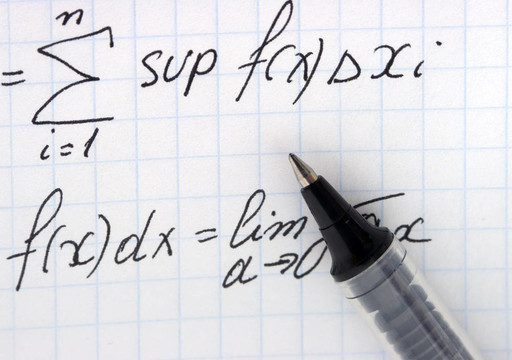 = n∑i=1 sup f(x) Δxi
f(x)dx = lim a→0 x